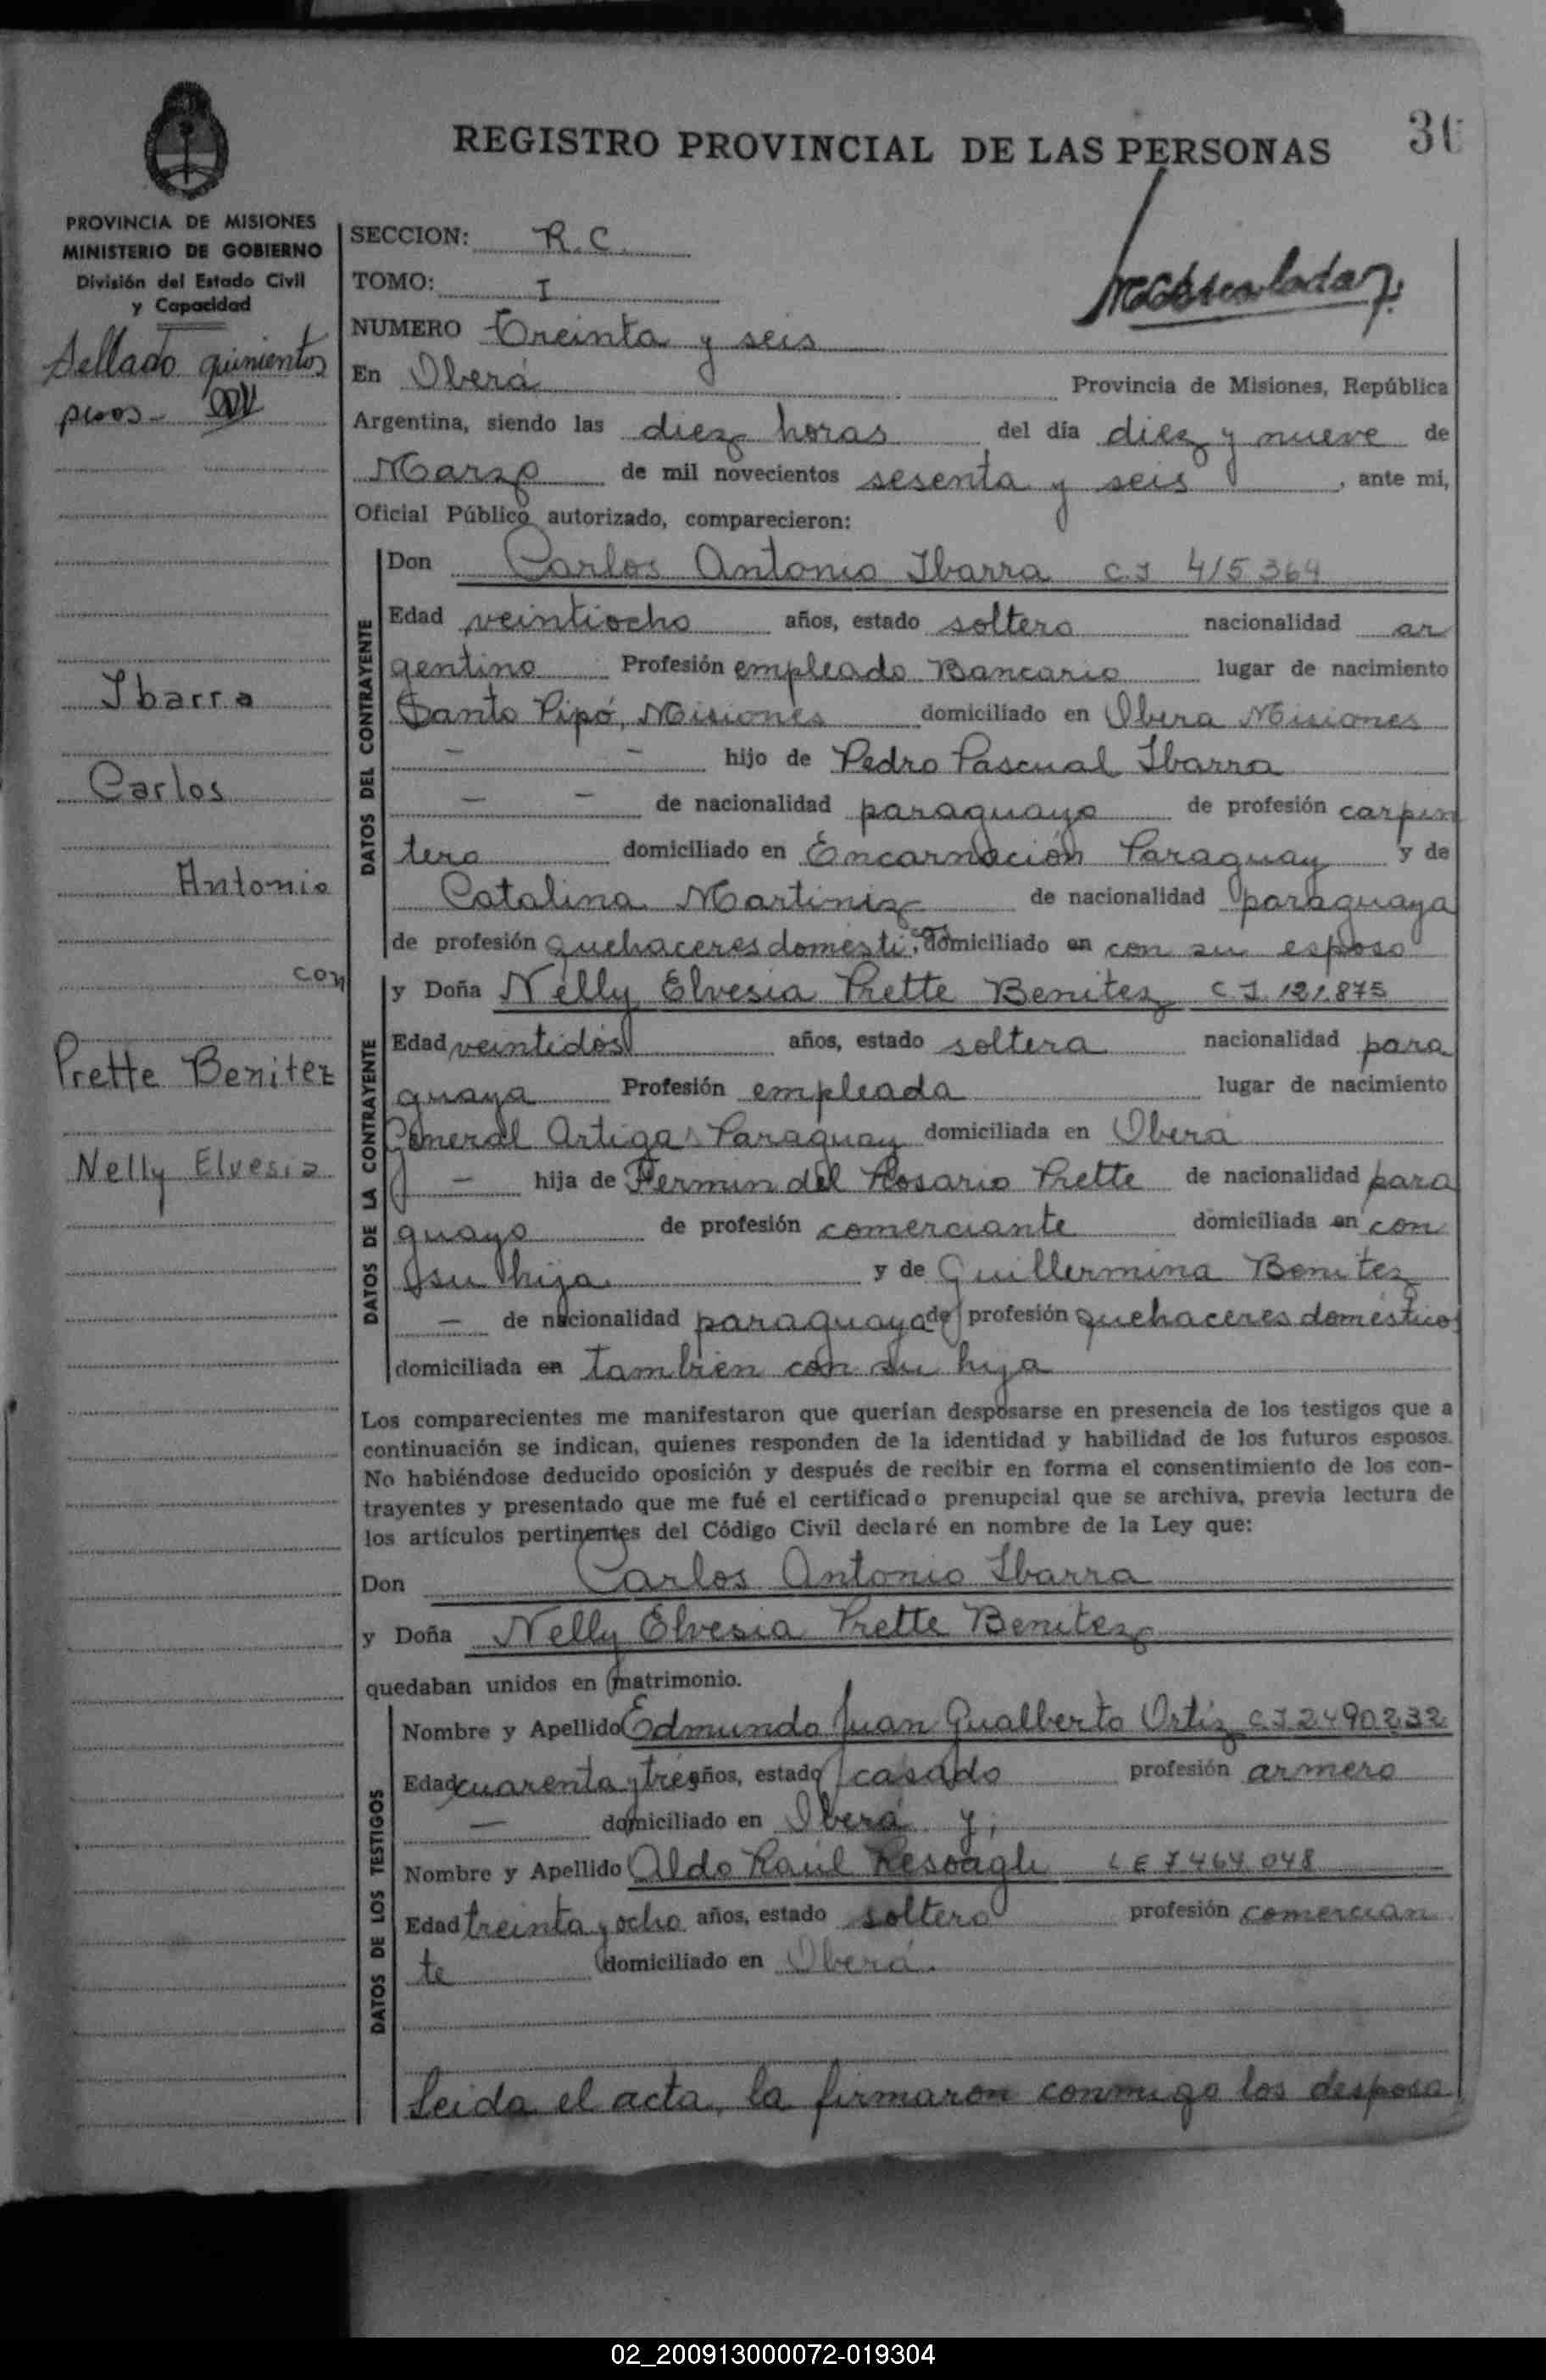 REGISTRO PROVINCIAL DE LAS PERSONAS
PROVINCIA DE MISIONES
MINISTERIO DE GOBIERNO
División del Estado Civil
y Capacidad
Sellado quinientos
pesos-
Ibarra
Carlos
Antonio
con
Prette Benitez
Nelly Elvesia
SECCION: R.C.
TOMO: I
NUMERO Treinta y seis
En Oberá Provincia de Misiones, República
Argentina, siendo las diez horas del día diez y nueve de
Marzo de mil novecientos sesenta y seis, ante mi,
Oficial Público autorizado, comparecieron:
DATOS DEL CONTRAYENTE
Don Carlos Antonio Ibarra C.I 415.364
Edad veintiocho años, estado soltero nacionalidad ar
gentino Profesión empleado Bancario lugar de nacimiento
Santo Pipó, Misiones domiciliado en Obera Misiones
— — hijo de Pedro Pascual Ibarra
— — de nacionalidad paraguayo de profesión carpin
tero domiciliado en Encarnación Paraguay y de
Catalina Martiniz de nacionalidad paraguaya
de profesión quehaceres domésti.cos domiciliado en con su esposo
DATOS DE LA CONTRAYENTE
y Doña Nelly Elvesia Prette Benitez C I. 121.875
Edad veintidós años, estado soltera nacionalidad para
guaya Profesión empleada lugar de nacimiento
General Artigas Paraguay domiciliada en Oberá
— hija de Fermin del Rosario Prette de nacionalidad para
guayo de profesión comerciante domiciliada en con
su hija y de Guillermina Benitez
— de nacionalidad paraguaya de profesión quehaceres domésticos
domiciliada en tambien con su hija
Los comparecientes me manifestaron que querían desposarse en presencia de los testigos que a
continuación se indican, quienes responden de la identidad y habilidad de los futuros esposos.
No habiéndose deducido oposición y después de recibir en forma el consentimiento de los con-
trayentes y presentado que me fué el certificado prenupcial que se archiva, previa lectura de
los artículos pertinentes del Código Civil declaré en nombre de la Ley que:
Don Carlos Antonio Ibarra
y Doña Nelly Elvesia Prette Benitez
quedaban unidos en matrimonio.
DATOS DE LOS TESTIGOS
Nombre y Apellido Edmundo Juan Gualberto Ortiz C.I 2490232
Edad cuarenta y tres años, estado casado profesión armero
— domiciliado en Oberá y;
Nombre y Apellido Aldo Raúl Resoagli L E 7464 048
Edad treinta y ocho años, estado soltero profesión comercian
te domiciliado en Oberá.
Leida el acta, la firmaron conmigo los desposa
02_200913000072-019304